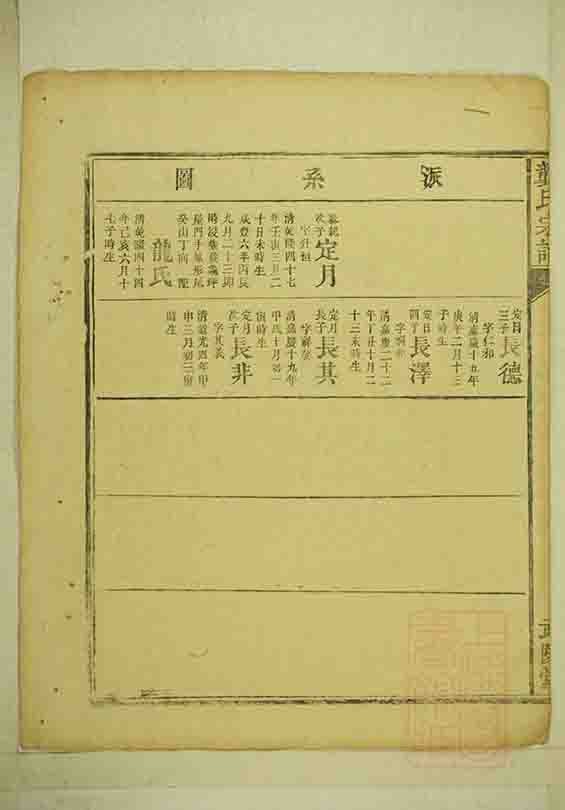 龔氏宗譜
派系圖
次子定月
字升恒
清乾隆四十七
年壬寅三月二
十日未時生
咸豐六年丙辰
九月二十三卯
癸山丁向配
龍氏
清乾隆四十四
年己亥六月十
七子時生
定日
三子長德
字仁和
清嘉慶十五年
庚午二月十三
子時生
定日
四子長澤
清嘉慶二十二
年丁丑十月二
十三未時生
定月
長子長其
清嘉慶十九年
甲戌十月初一
寅時生
定月
次子長非
清道光四年甲
申三月初三寅
時生